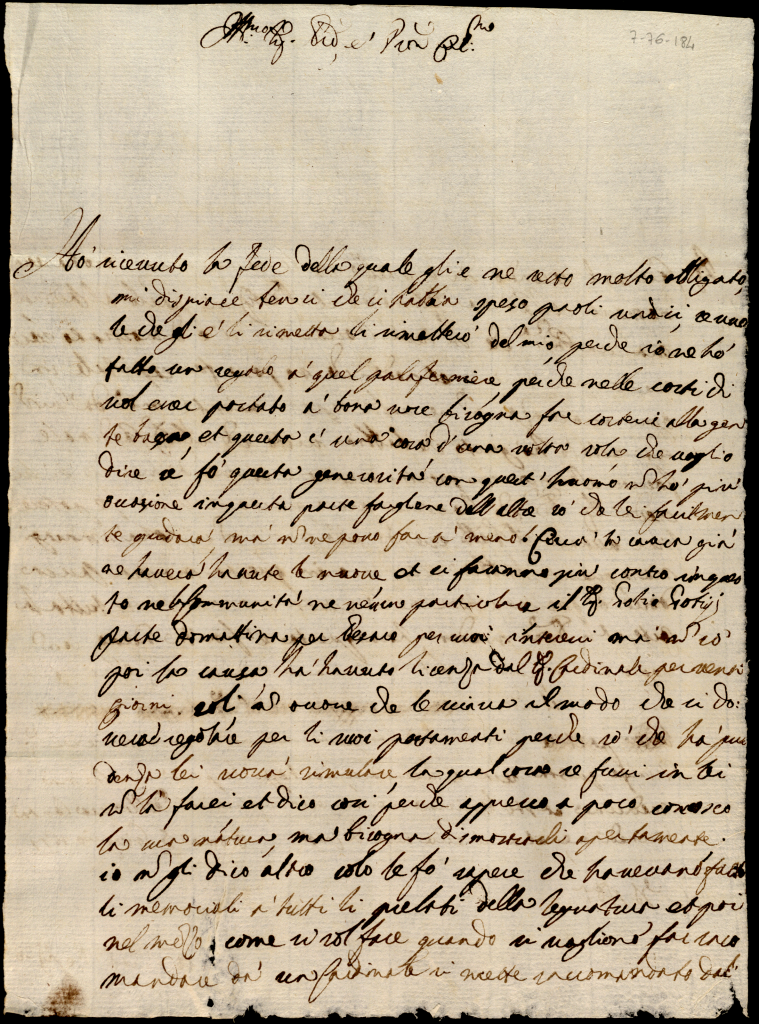 Ill:mo Sig. Sig, e Pron Col:mo
7-76-184
Hò riceuuto la fede della quale gli è ne resto molto obligato,
mi dispiace ben si che si habbia speso paoli undici, e uno
le che gli è li rimetta li rimetterò del mio, perche io ne hò
fatto un regalo à quel palafreniere, perche nelle corti di
uol esser portato à bona uoce bisogna far correre alla gen
te bassa, et questa è una cosa d'una uolta sola che uoglio
dire se fò questa generosità con quest'huomo nò hò più
occasione in questa parte fargliene dell'altre sò che lei facilmen
te giudica mà nò ne posso far à meno. Circa la causa già
ne hauerà hauute le nuoue et si faranno più contro in ques
to nella Communità ne nessun particolare il Sig. Gotio Gotij
parte domattina per Pesaro per suoi interessi mà nò sò
poi la causa hà hauuto licenza dal Sig. Cardinale per uenti
giorni. Lei nò occore che le scriua il modo che si do:
uerà regolare per li suoi portamenti perche sò che hà pru
denza lei uorrà simulare la qual cosa se fussi in lei
nò la farei et dico così perche appresso a poco conosco
la sua natura, ma bisogna dimostrarli apertamente.
io nò gli dico altro solo le fò sapere che haueuano fatto
li memoriali à tutti li prelati della segnatura et poi
nel mezzo, come si sol fare quando si uogliono far raco
mandare dà un Cardinale si mette raccomandato dal